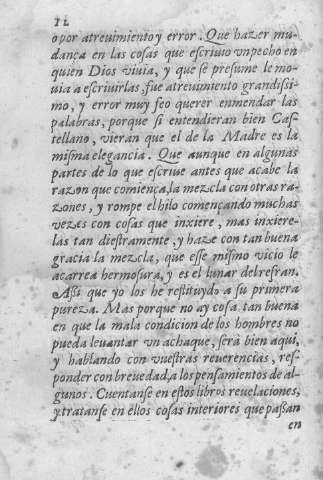 12
o por atreuimiento y error. Que hazer mu-
dança en las cosas que escriuio vn pecho en
quien Dios viuia, y que se presume le mo-
uia a escriuirlas, fue atreuimiento grandissi-
mo, y error muy feo querer enmendar las
palabras, porque si entendieran bien Cas-
tellano, vieran que el de la Madre es la
misma elegancia. Que aunque en algunas
partes de lo que escriue antes que acabe la
razon que comiença, la mezcla con otras ra-
zones, y rompe el hilo començando muchas
vezes con cosas que inxiere, mas inxiere-
las tan diestramente, y haze con tan buena
gracia la mezcla, que esse mismo vicio le
acarrea hermosura, y es el lunar del refran.
Assi que yo los he restituydo a su primera
pureza. Mas porque no ay cosa tan buena
en que la mala condicion de los hombres no
pueda leuantar vn achaque, será bien aqui,
y hablando con vuestras reuerencias, res-
ponder con breuedad, a los pensamientos de al-
gunos. Cuentanse en estos libros reuelaciones,
y tratanse en ellos cosas interiores que passan
en